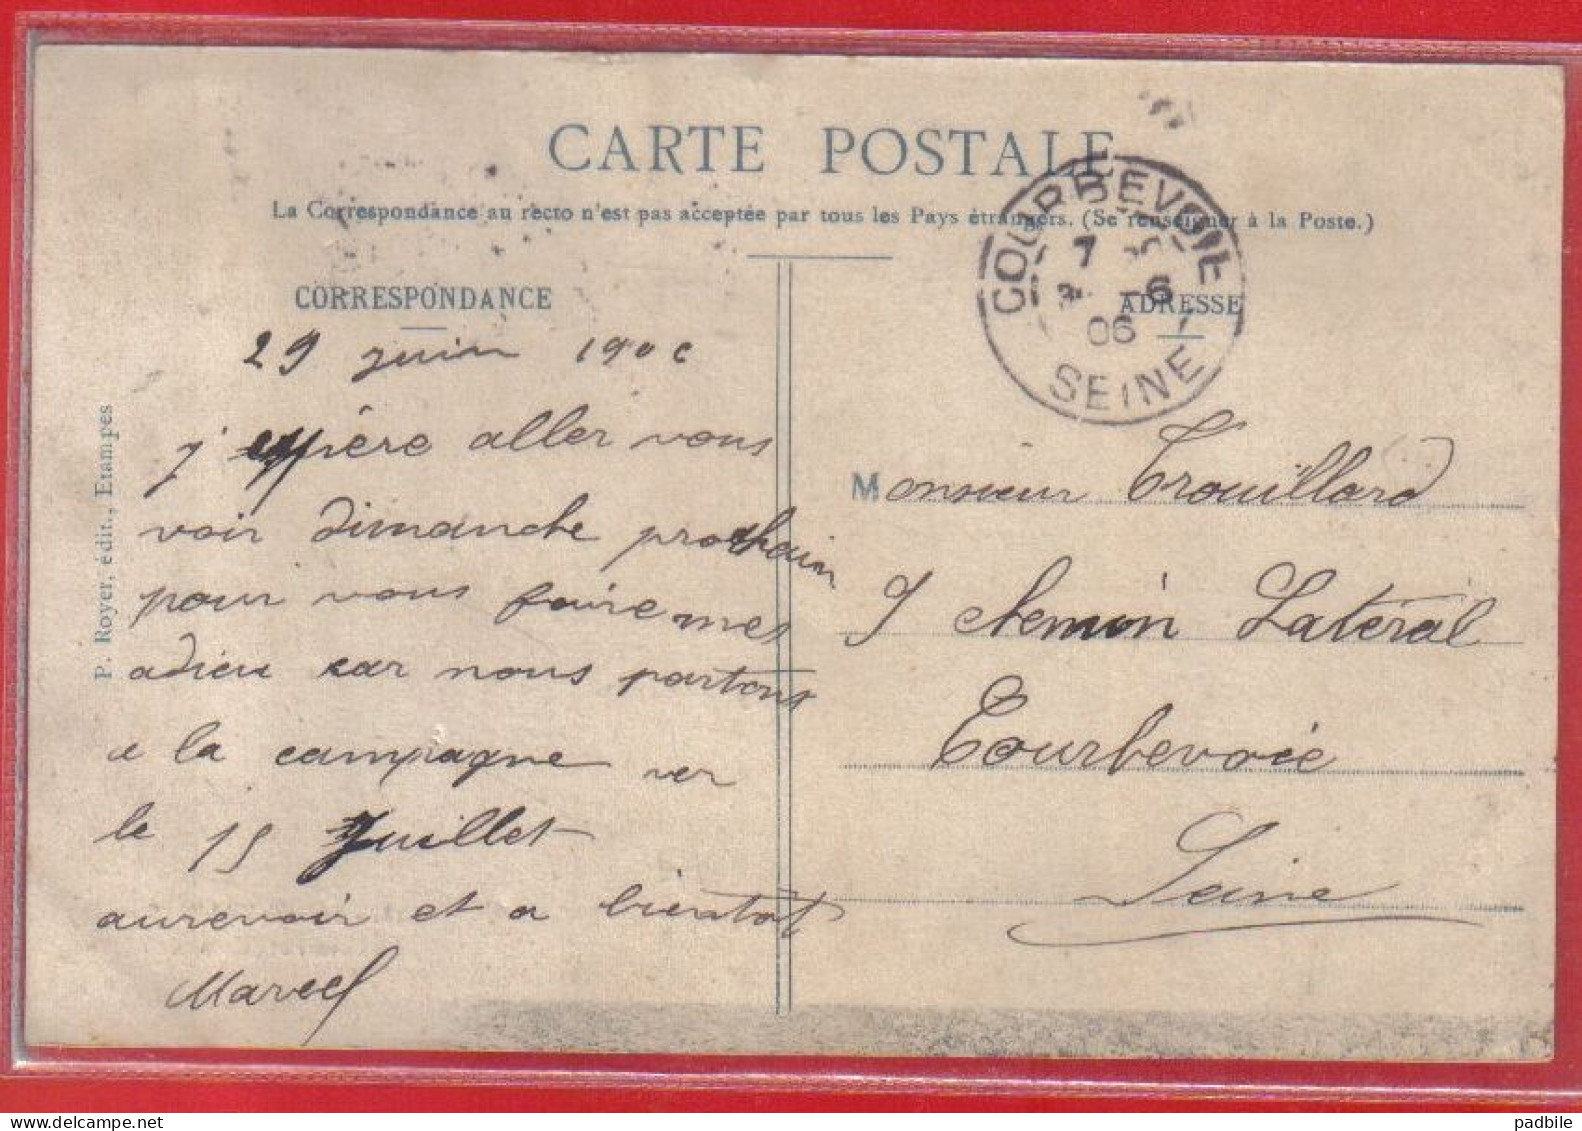 CARTE POSTALE
La Correspondance au recto n'est pas acceptée par tous les Pays étrangers. (Se renseigner à la Poste.)
CORRESPONDANCE
29 juin 1906
j'espère aller vous
voir dimanche prochain
pour vous faire mes
adieu car nous partons
a la campagne ver
le 15 Juillet
aurevoir et a bientot
Marcel
P. Royer, édit., Etampes
COURBEVOIE
7
-6
06
SEINE
ADRESSE
Monsieur Trouillard
7 chemin Latéral
Courbevoie
Seine
padbile